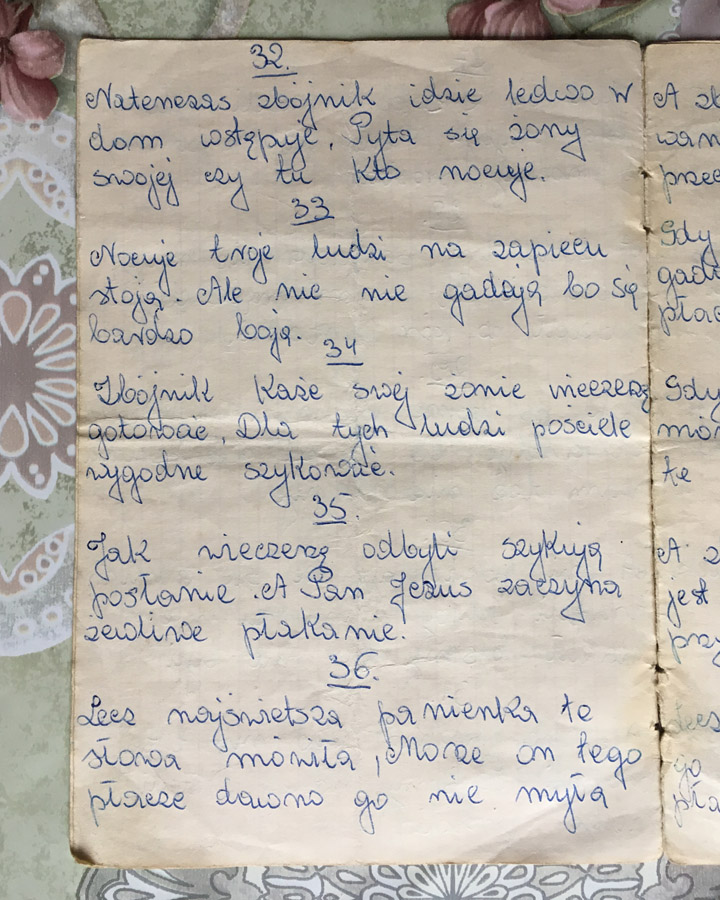 32.
Natenczas zbójnik idzie ledwo w
dom wstępuje, Pyta się żony
swojej czy tu kto nocuje.
33
Nocuje troje ludzi na zapiecu
stoją. Ale nic nie gadają bo się
bardzo boją.
34
Zbójnik każe swéj żonie wieczerzę
gotować, Dla tych ludzi pościele
wygodne szykować.
35.
Jak wieczerzę odbyli szykują
posłanie. A Pan Jezus zaczyna
żewliwe płakanie.
36.
Lecz najświetsza panienka te
słowa mówiła, Może on tego
płacze dawno go nie myła
A
przed
Gdy
Gdy
te
A
jest
Lecz
go